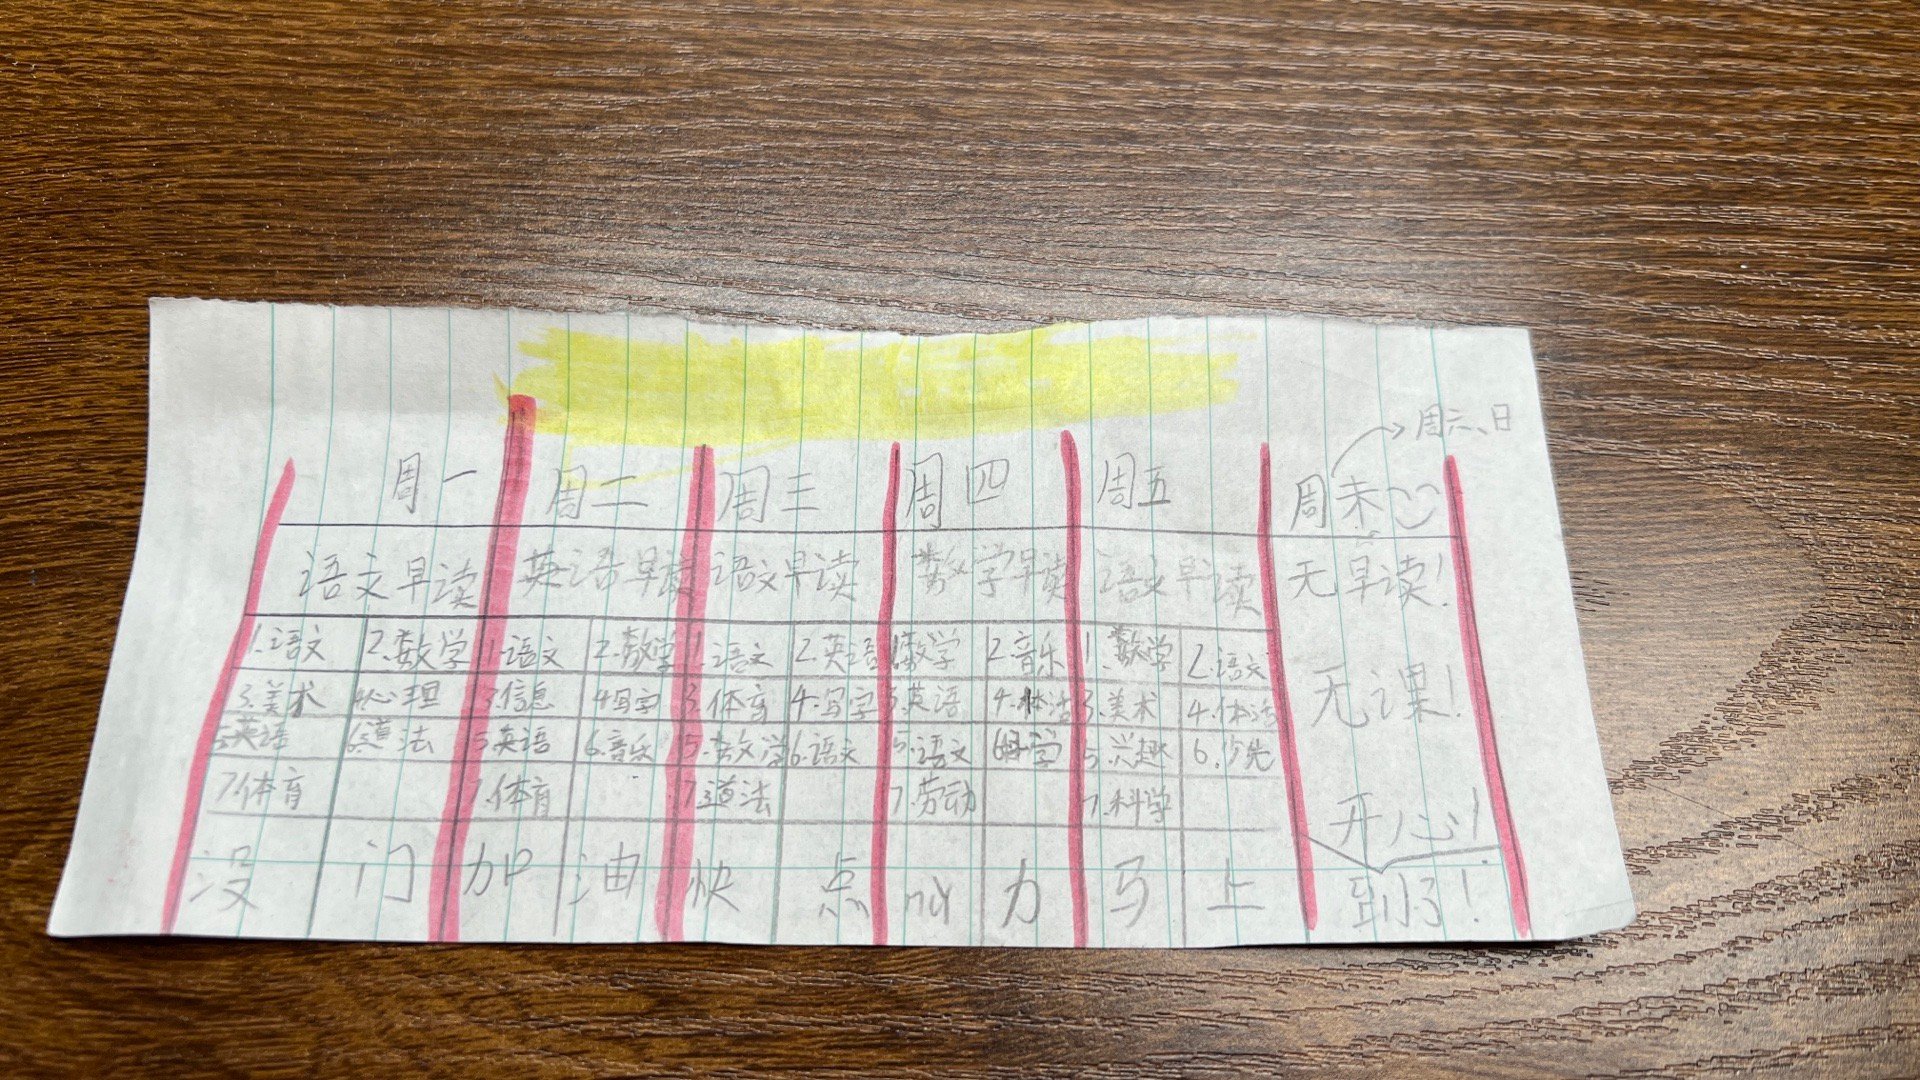 周六、日
周一 周二 周三 周四 周五 周末
语文早读 英语早读 语文早读 数学早读 语文早读 无早读!
1.语文 2.数学 1.语文 2.数学 1.语文 2.英语 1.数学 2.音乐 1.数学 2.语文 无课!
3.美术 4.心理 3.信息 4.写字 3.体育 4.写字 3.英语 4.体活 3.美术 4.体活
5.英语 6.道法 5.英语 6.音乐 5.数学 6.语文 5.语文 6.科学 5.兴趣 6.少先
7.体育 7.体育 7.道法 7.劳动 7.科学 开心!
没门 加油 快点 给力 马上 到了!